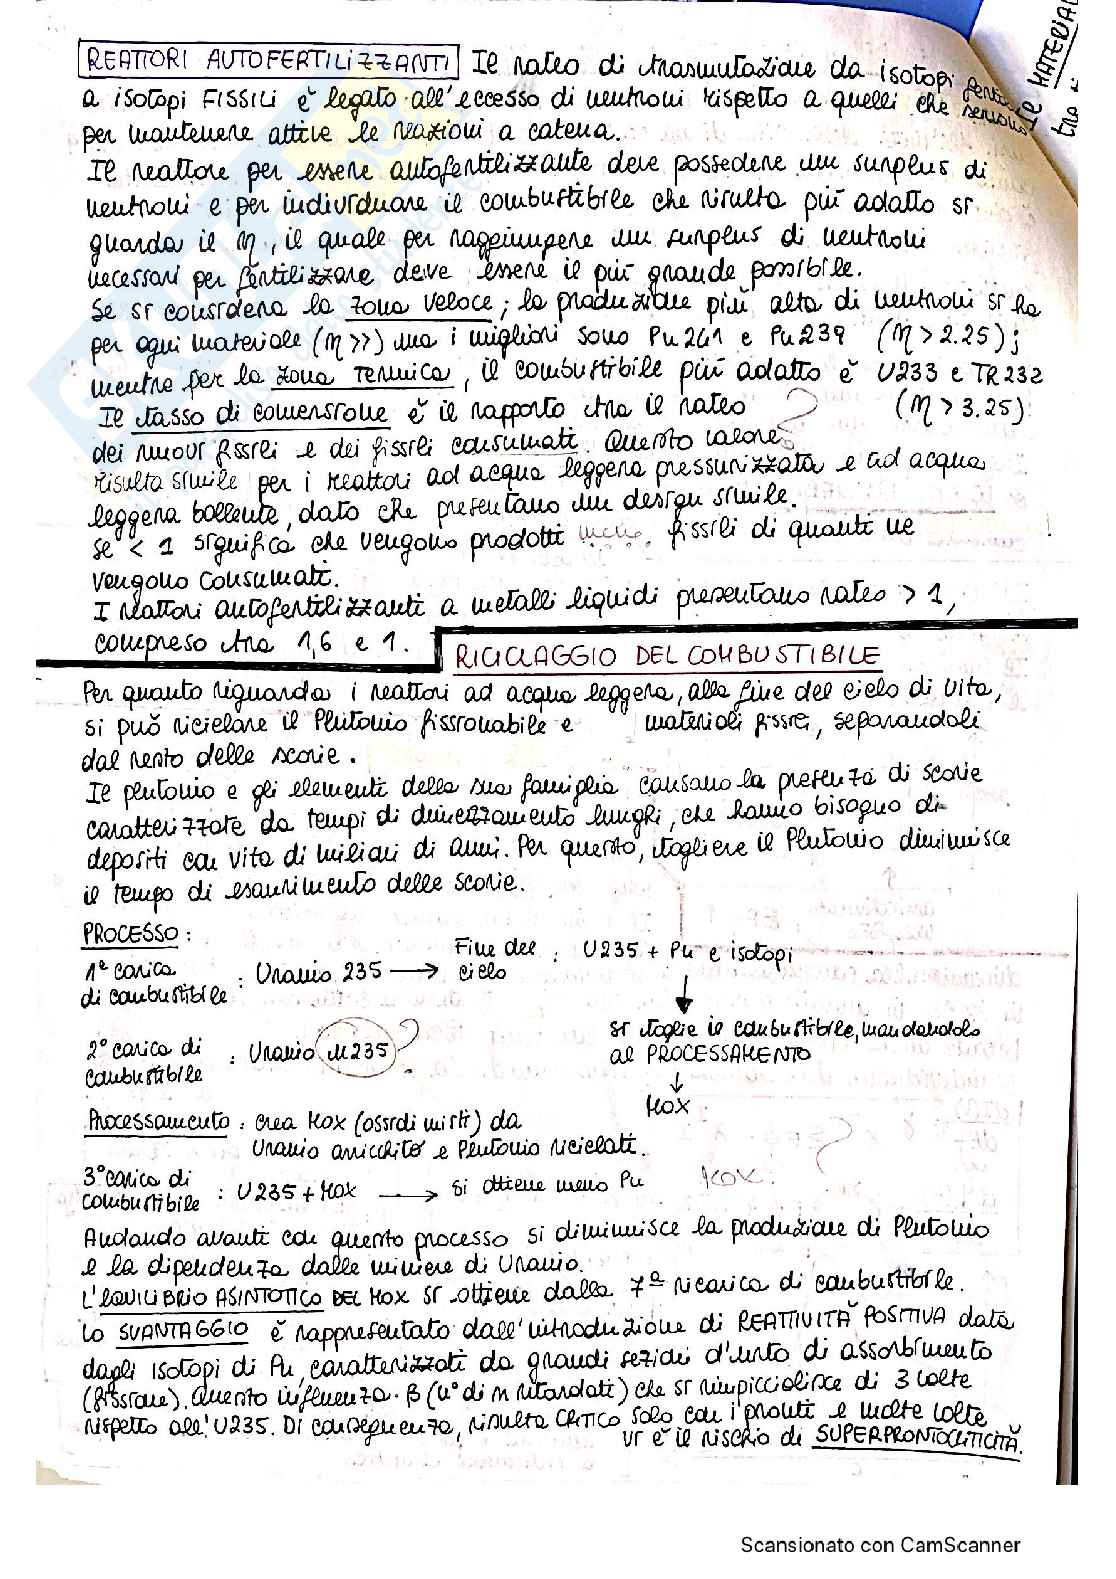 REATTORI AUTOFERTILIZZANTI Il rateo di trasmutazione da isotopi fertili
a isotopi FISSILI è legato all'eccesso di neutroni rispetto a quelli che servono
per mantenere attive le reazioni a catena.
Il reattore per essere autofertilizzante deve possedere un surplus di
neutroni e per individuare il combustibile che risulta più adatto si
guarda il η, il quale per raggiungere un surplus di neutroni
necessari per fertilizzare deve essere il più grande possibile.
Se si considera la zona veloce; la produzione più alta di neutroni si ha
per ogni materiale (η>>) ma i migliori sono Pu241 e Pu239 (η > 2.25);
mentre per la zona termica, il combustibile più adatto è U233 e TR232
Il tasso di conversione è il rapporto tra il rateo ? (η > 3.25)
dei nuovi fissili e dei fissili consumati. Questo valore
risulta simile per i reattori ad acqua leggera pressurizzata e ad acqua
leggera bollente, dato che presentano un design simile.
se < 1 significa che vengono prodotti meno fissili di quanti ne !
vengono consumati.
I reattori autofertilizzanti a metalli liquidi presentano rateo > 1,
compreso tra 1,6 e 1.
RICICLAGGIO DEL COMBUSTIBILE
Per quanto riguarda i reattori ad acqua leggera, alla fine del ciclo di vita,
si può riciclare il Plutonio fissionabile e materiali fissili, separandoli
dal resto delle scorie.
Il plutonio e gli elementi della sua famiglia causano la presenza di scorie
caratterizzate da tempi di dimezzamento lunghi, che hanno bisogno di
depositi con vita di miliari di anni. Per questo, togliere il Plutonio diminuisce
il tempo di esaurimento delle scorie.
PROCESSO:
1ª carica di combustibile : Uranio 235 → Fine del ciclo : U235 + Pu e isotopi
↓
si toglie il combustibile, mandandolo
al PROCESSAMENTO
↓
MOX
2º carica di combustibile : Uranio U235 ?
Processamento : crea MOX (ossidi misti) da
Uranio arricchito e Plutonio riciclati.
3º carica di combustibile : U235 + MOX → Si ottiene meno Pu MOX.
Andando avanti con questo processo si diminuisce la produzione di Plutonio
e la dipendenza dalle miniere di Uranio.
L'EQUILIBRIO ASINTOTICO DEL MOX si ottiene dalla 7ª ricarica di combustibile.
Lo SVANTAGGIO è rappresentato dall'introduzione di REATTIVITÀ POSITIVA data
dagli isotopi di Pu, caratterizzati da grandi sezioni d'urto di assorbimento
(fissione). Questo influenza β (n° di n ritardati) che si rimpicciolisce di 3 volte
rispetto all'U235. Di conseguenza, risulta CRITICO solo con i pronti e molte volte
vi è il rischio di SUPERPRONTOCRITICITÀ.
Scansionato con CamScanner